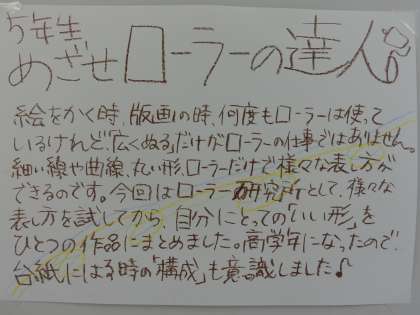 5年生
めざせローラーの達人
絵をかく時、版画の時、何度もローラーは使って
いるけれど、「広くぬる」だけがローラーの仕事ではありません。
細い線や曲線、丸い形、ローラーだけで様々な表し方が
できるのです。今回はローラー研究所として、様々な
表し方を試してから、自分にとっての「いい形」を
ひとつの作品にまとめました。高学年になったので、
台紙にはる時の「構成」も意識しました♪